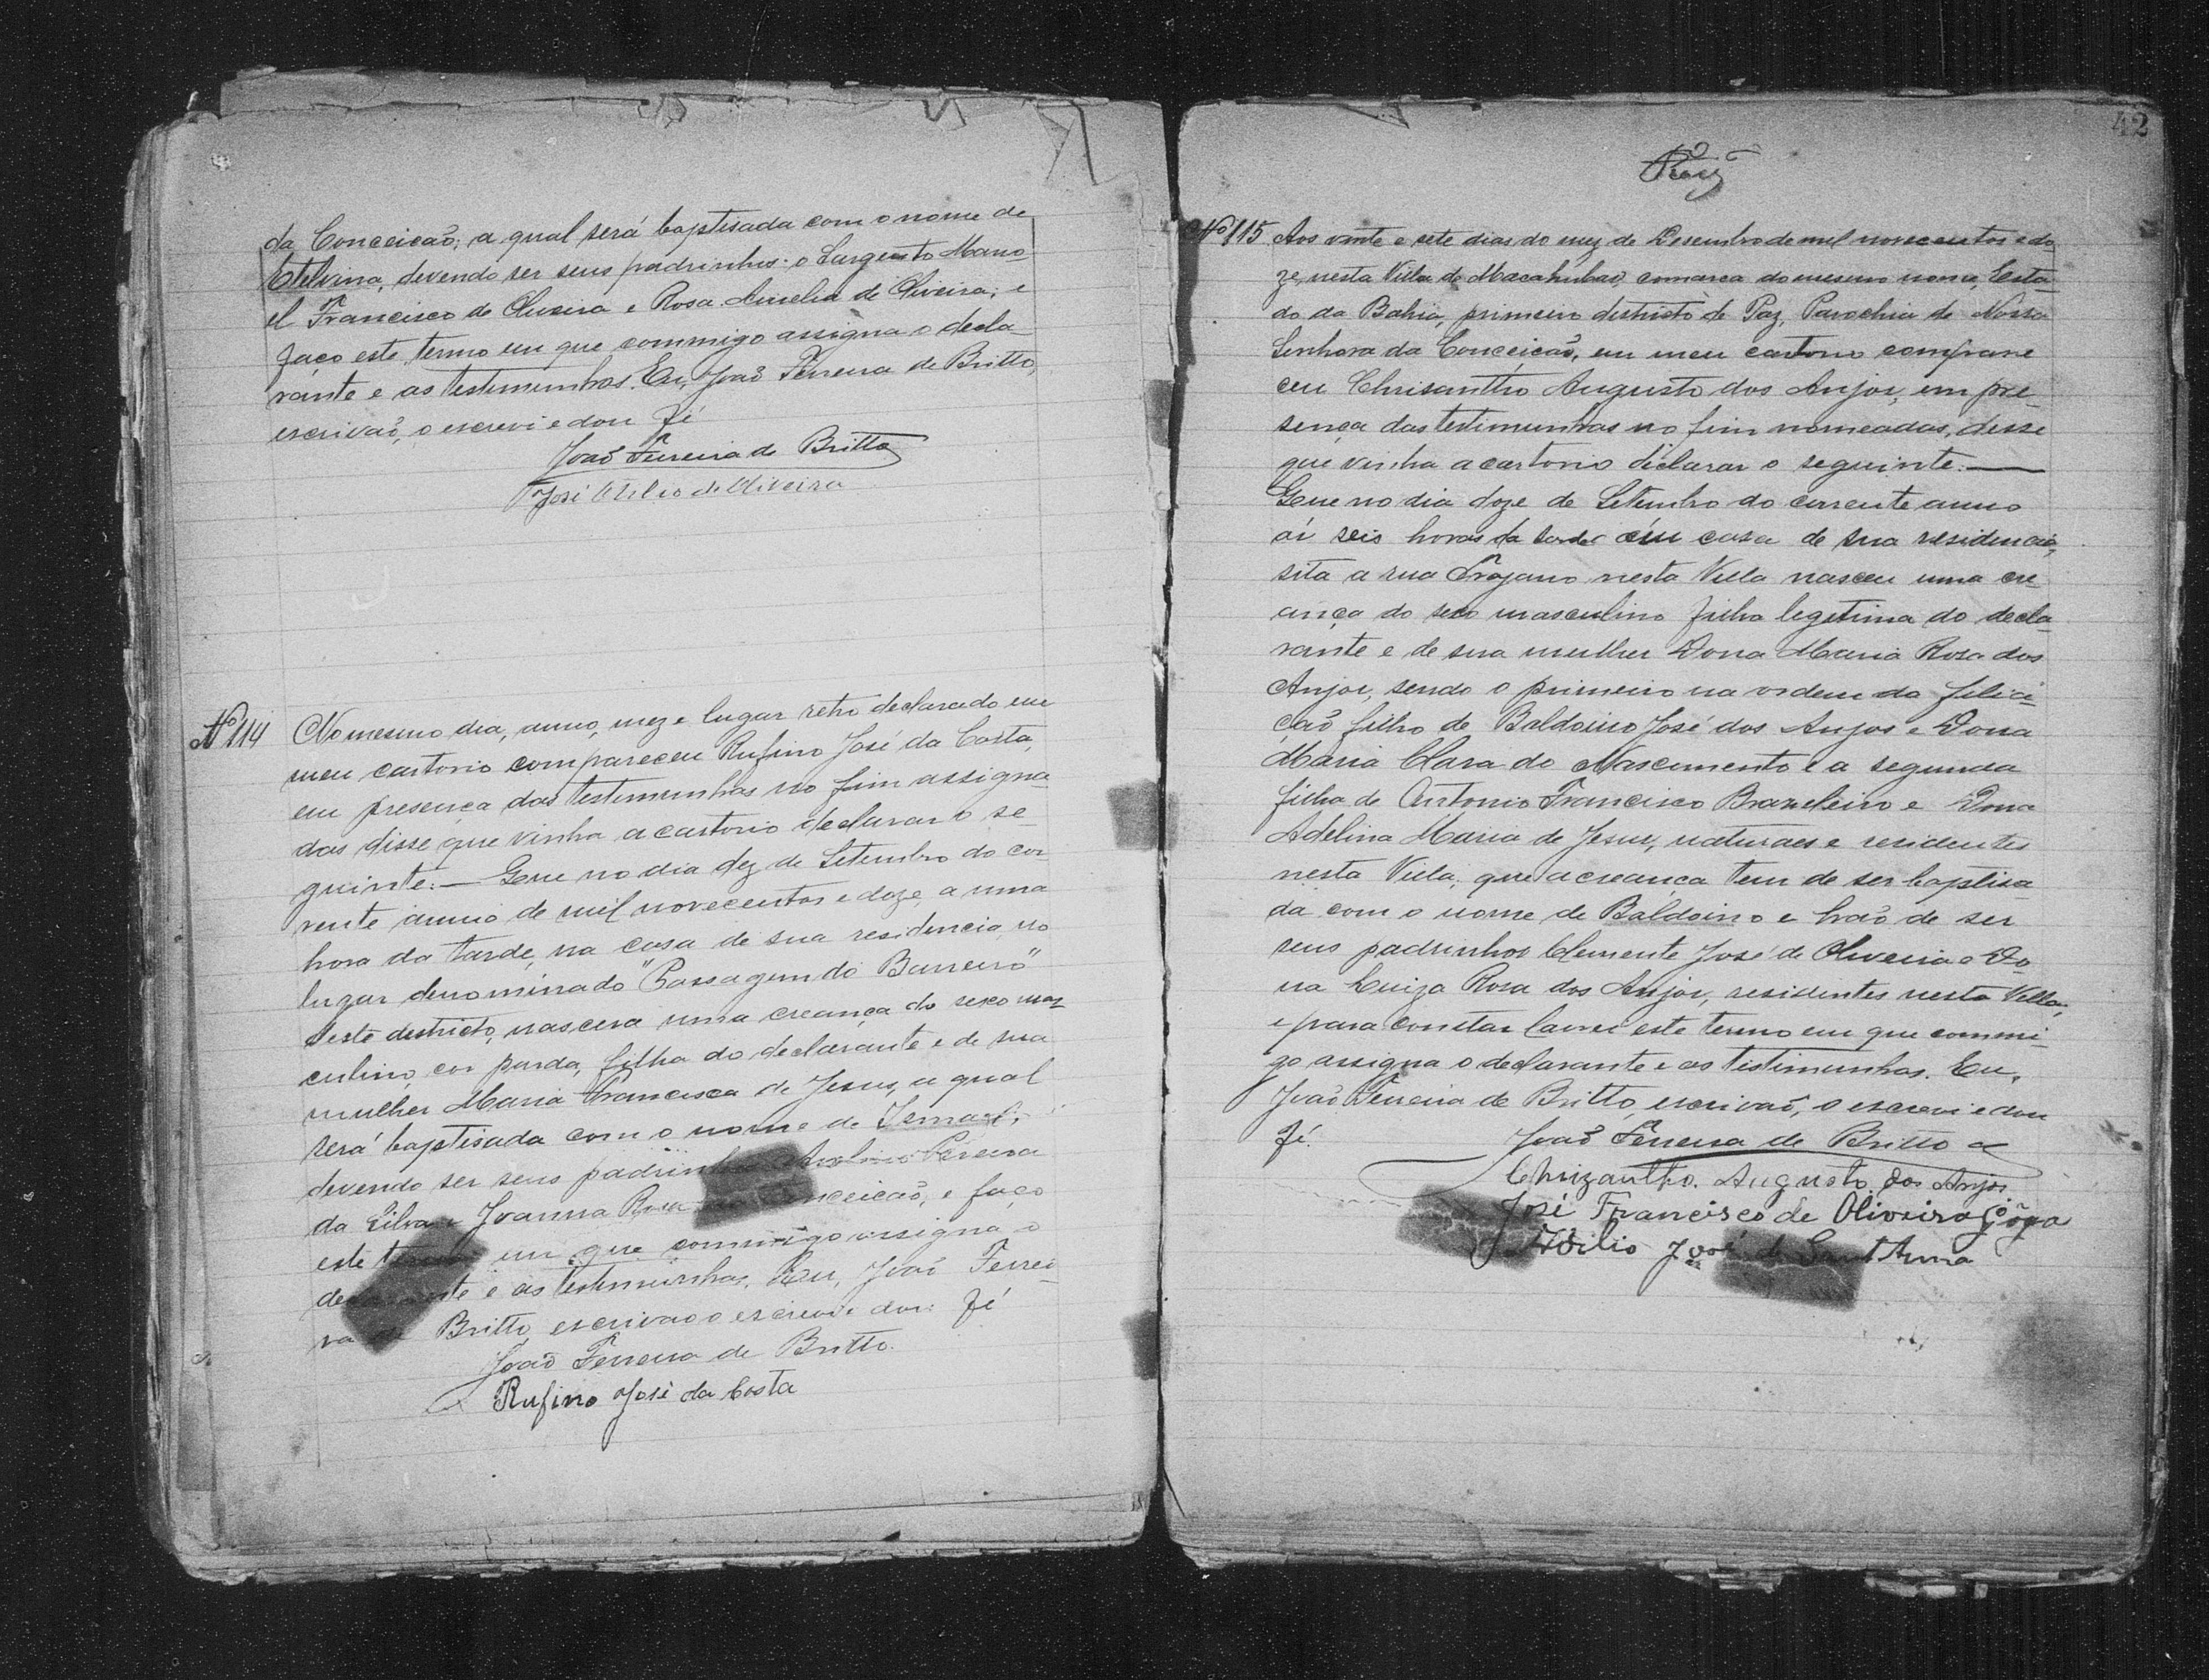 da Conceicaõ; a qual será baptisada com o nome de
Etelvina, devendo ser seus padrinhos: o Sargento Mano
el Francisco de Oliveira e Rosa Amelia de Oliveira; e
faço este termo em que commigo assigna o decla
rante e as testemunhas. Eu, Joaõ Ferreira de Britto,
escrivaõ, o escrevi e dou fé
Joaõ Ferreira de Britto
José de Oliveira
Nº 114 No mesmo dia, anno, mez e lugar retro declarado em
meu cartorio compareceu Rufino José da Costa,
em presença das testemunhas no fim assigna
das disse que vinha a cartorio declarar o se
guinte:— Que no dia dez de Setembro do cor
rente anno de mil novecentos e doze, a uma
hora da tarde, na casa de sua residencia, no
lugar denominado "Passagem do Barreiro"
deste districto, nascera uma creança do sexo mas
culino, cor parda, filha do declarante e de sua
mulher Maria Francisca de Jesus, a qual
será baptisada com o nome de Ismael;
devendo ser seus Pereira
da Silva e Joanna Rosa da Conceicaõ, e faço
este termo em que commigo assigna o
declarante e as testemunhas. Eu, Joaõ Ferrei
ra de Britto, escrivaõ o escrevi e dou fé
Joaõ Ferreira de Britto.
Rufino José da Costa
42
Nº 115 Aos vinte e sete dias do mez de Desembro de mil novecentos e do
ze, nesta Villa de Macahubas, comarca do mesmo nome, Esta
do da Bahia, primeiro districto de Paz, Parochia de Nossa
Senhora da Conceicaõ, em meu cartorio compare
ceu Chrisantho Augusto dos Anjos, em pre
sença das testimunhas no fim nomeadas, disse
que vinha a cartorio declarar o seguinte:—
Que no dia doze de Setembro do corrente anno
ás seis horas da tarde em casa de sua residencia,
sita a rua Trajano nesta Villa nasceu uma cre
ança do sexo masculino filha legitima do decla
rante e de sua mulher Dona Maria Rosa dos
Anjos, sendo o primeiro na ordem da filia
çaõ filho de Baldoino José dos Anjos e Dona
Maria Clara do Nascimento e a segunda
filha de Antonio Francisco Brazeleiro e Dona
Adelina Maria de Jesus, naturaes e residentes
nesta Villa; que a creança tem de ser baptisa
da com o nome de Baldoino e haõ de ser
seus padrinhos Clemente José de Oliveira e Do
na Luiza Rosa dos Anjos, residentes nesta Villa,
e para constar lavrei este termo em que commi
go assigna o declarante e as testimunhas. Eu,
Joaõ Ferreira de Britto, escrivaõ, o escrevi e dou
fé. Joaõ Ferreira de Britto
Chrizantho Augusto dos Anjos
José Francisco de Oliveira
Adilio José de Sant Anna